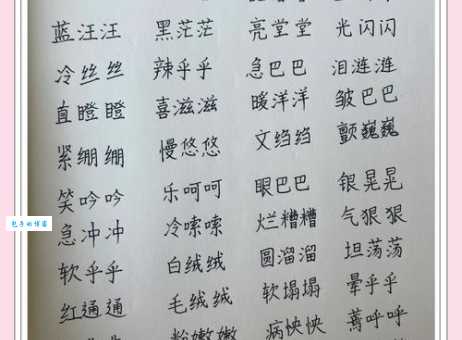 蓝汪汪 黑茫茫 亮堂堂 光闪闪
冷丝丝 辣乎乎 急巴巴 泪涟涟
直瞪瞪 喜滋滋 暖洋洋 皱巴巴
紧绷绷 慢悠悠 文绉绉 颤巍巍
笑吟吟 乐呵呵 眼巴巴 银晃晃
急冲冲 冷嗦嗦 烂糟糟 气狠狠
软乎乎 白绒绒 圆溜溜 坦荡荡
红通通 毛绒绒 软塌塌 晕乎乎
粉嫩嫩 病怏怏 蔫呼呼